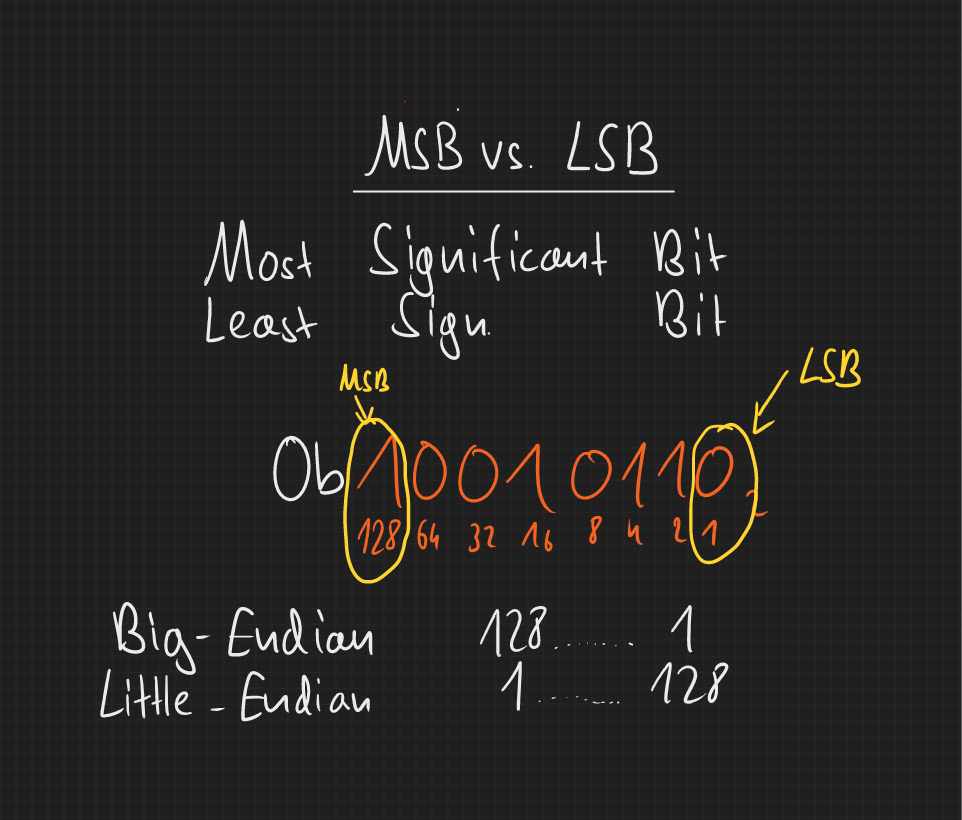 MSB vs. LSB
Most Significant Bit
Least Sign. Bit
MSB
LSB
0b10010110
2
128 64 32 16 8 4 2 1
Big-Endian 128........ 1
Little-Endian 1........ 128